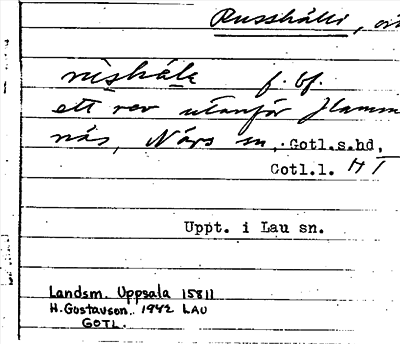 Russhålli, 
rusḥålę f. bf.
ett rev utanför Hamm
näs, Närs sn, Gotl.s.hd,
Gotl.l. H I
Uppt. i Lau sn.
Landsm. Uppsala 15811
H. Gustavson. 1942 LAU
GOTL.